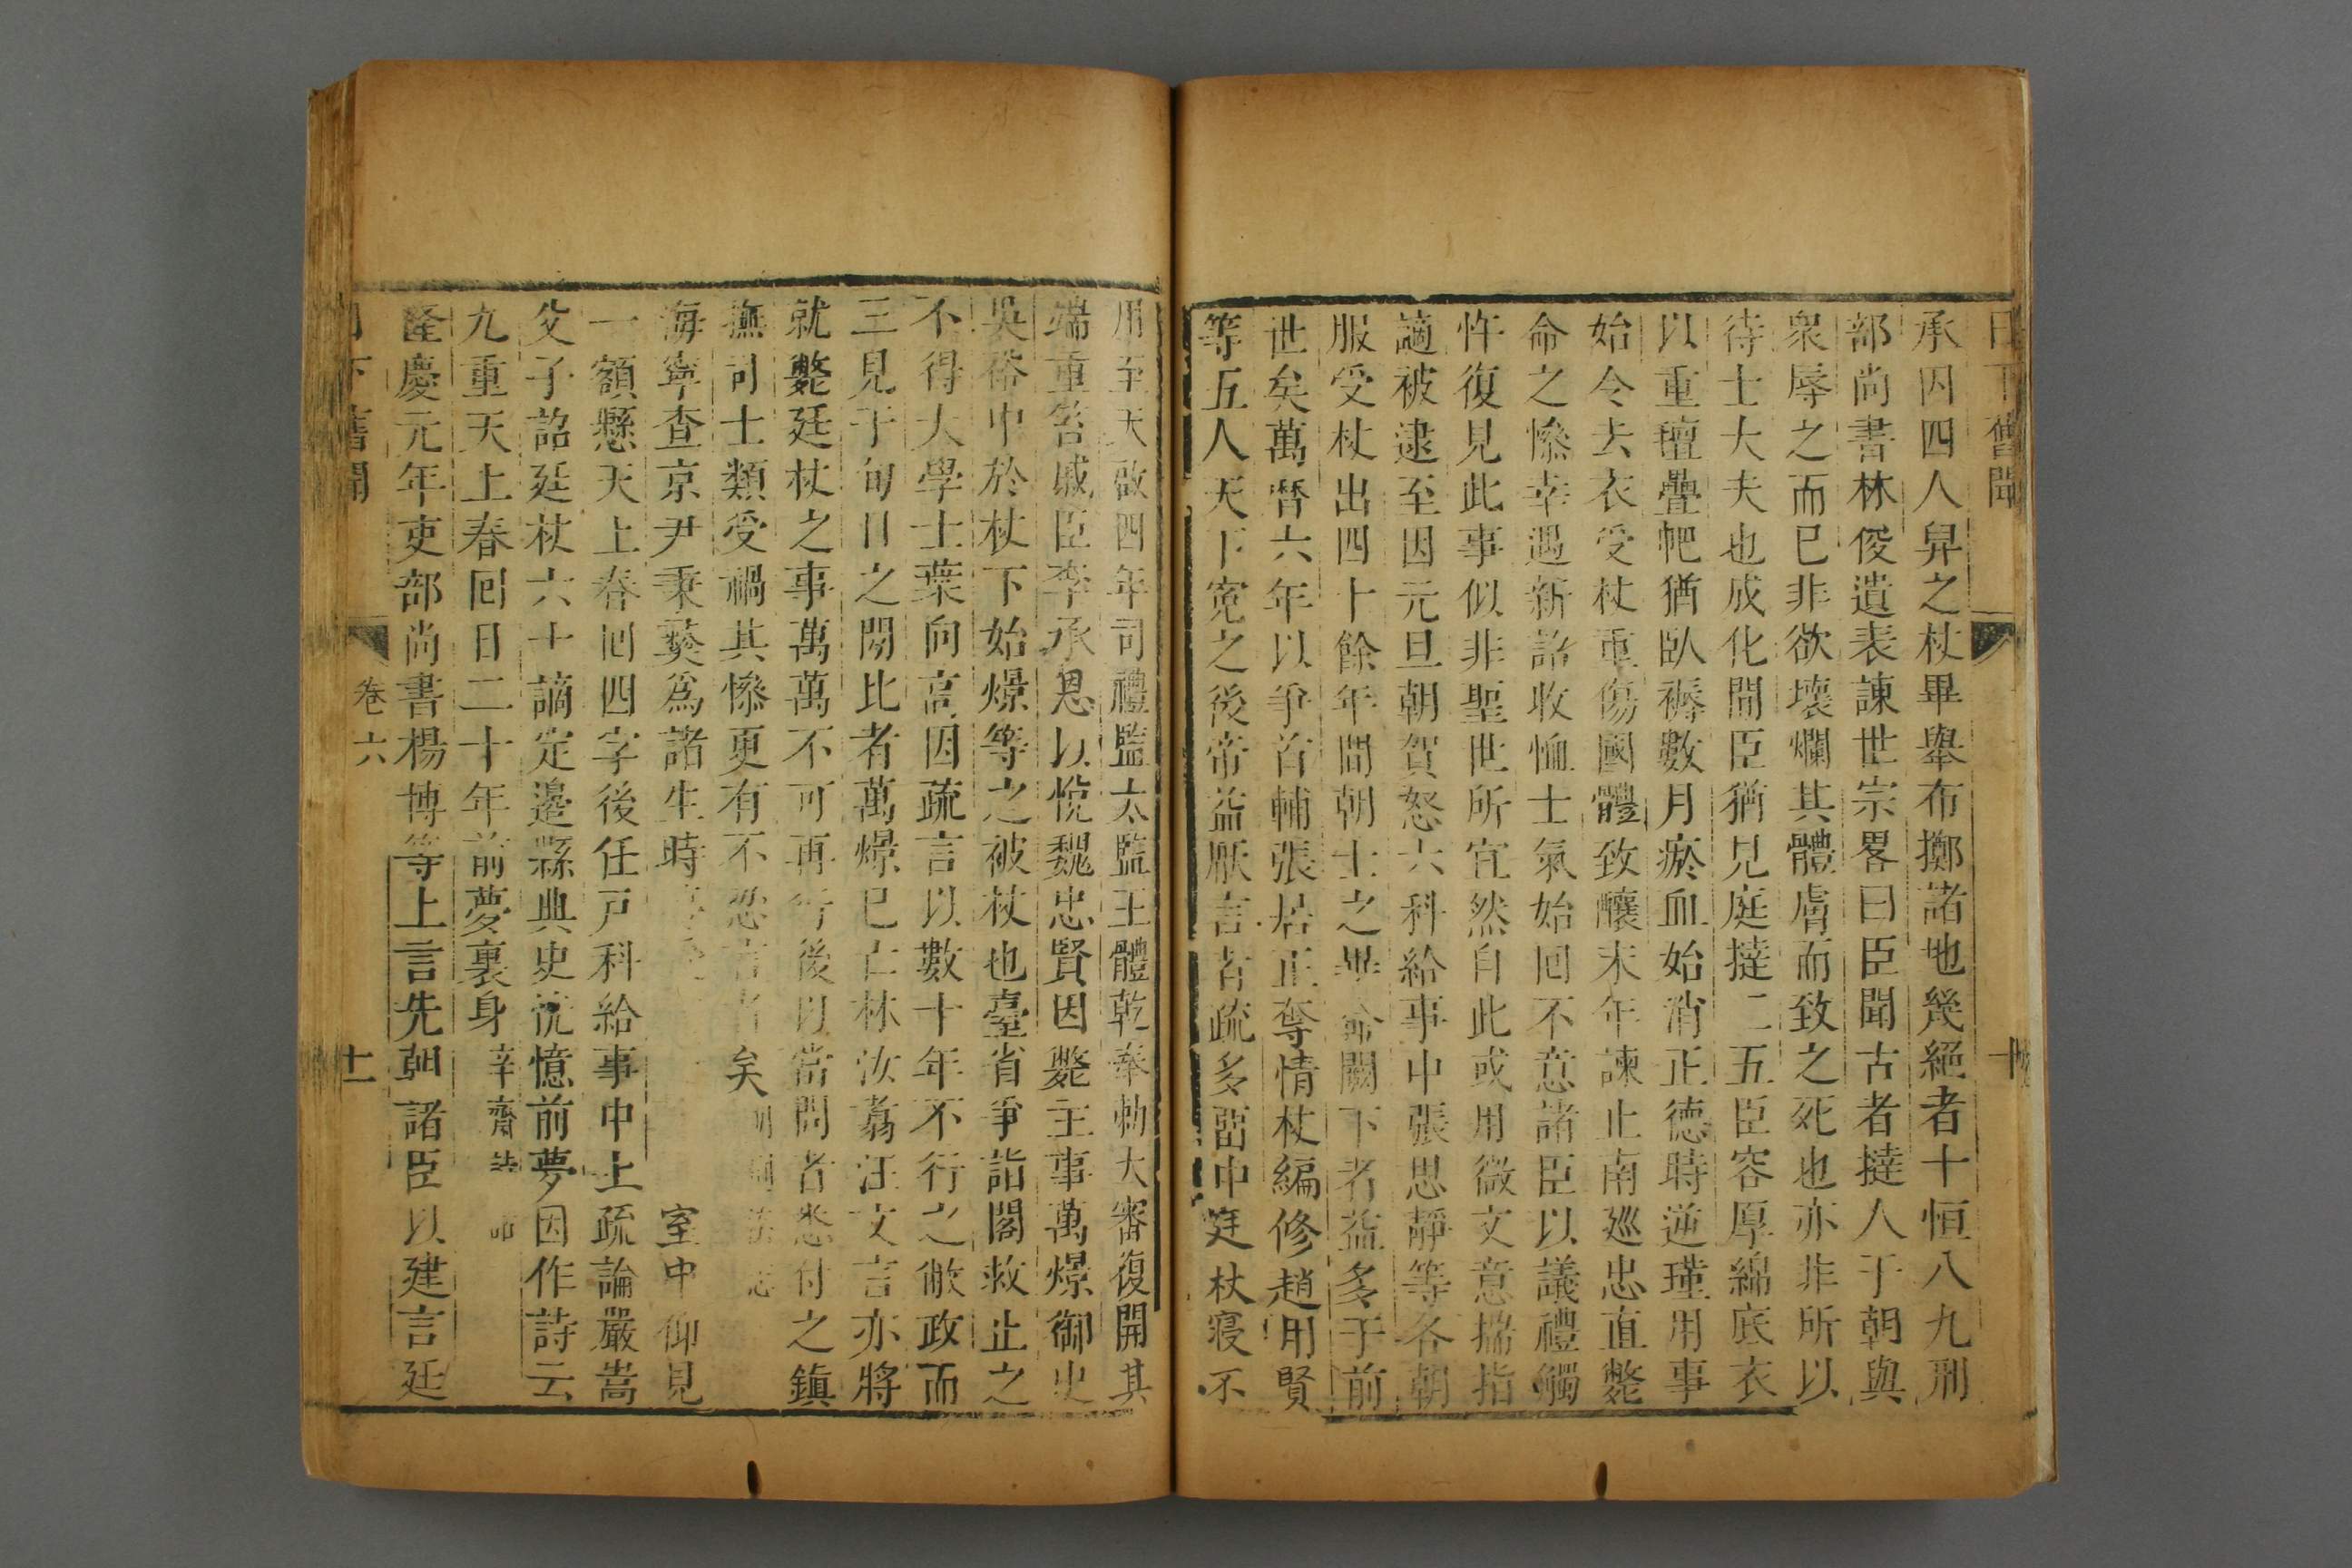 日下舊聞
承囚四人舁之杖畢舉布擲諸地幾絕者十恒八九刑
部尚書林俊遺表諫世宗畧曰臣聞古者撻人于朝與
衆辱之而已非欲壞爛其體膚而致之死也亦非所以
待士大夫也成化間臣猶見庭撻二五臣容厚綿底衣
以重氊疊帊猶臥褥數月瘀血始消正德時逆瑾用事
始令去衣受杖重傷國體致釀末年諫止南廵忠直斃
命之慘幸遇新詔收恤士氣始回不意諸臣以議禮觸
忤復見此事似非聖世所宜然自此或用微文意揣指
謫被逮至因元旦朝賀怒六科給事中張思靜等各朝
服受杖出四十餘年間朝士之畢命闕下者益多于前
世矣萬曆六年以爭首輔張居正奪情杖編修趙用賢
等五人天下寃之後帝益厭言者疏多畱中廷杖寢不
用至天啟四年司禮監太監王體乾奉勅大審復開其
端重笞戚臣李承恩以悅魏忠賢因斃主事萬燝御史
吳裕中於杖下始燝等之被杖也臺省爭詣閣救止之
不得大學士葉向高因疏言以數十年不行之敝政而
三見于旬日之間比者萬燝已亡林汝翥汪文言亦將
就斃廷杖之事萬萬不可再行後以當問者悉付之鎮
撫司士類受禍其慘更有不忍言者矣 明刑法志
海寧查京尹秉彝爲諸生時 室中仰見
一額懸天上春回四字後任戸科給事中上疏論嚴嵩
父子詔廷杖六十謫定邊縣典史恍憶前夢因作詩云
九重天上春回日二十年前夢裏身 辛齋詩
隆慶元年吏部尚書楊博等上言先朝諸臣以建言廷
日下舊聞 卷六 十一